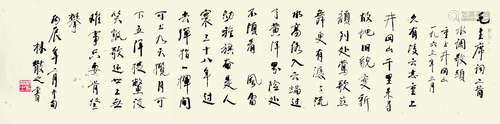 毛主席词二首
水调歌头
重上井冈山
一九六五年五月
久有凌云志重上
井冈山千里来寻
故地旧貌变新
颜到处莺歌燕
舞更有潺潺流
水高路入云端过
了黄洋界险处
不须看 风雷
动旌旗奋是人
寰三十八年过
去弹指一挥间
可上九天揽月可
下五洋捉鳖谈
笑凯歌还世上无
难事只要肯登
攀
丙辰年一月
林散之书